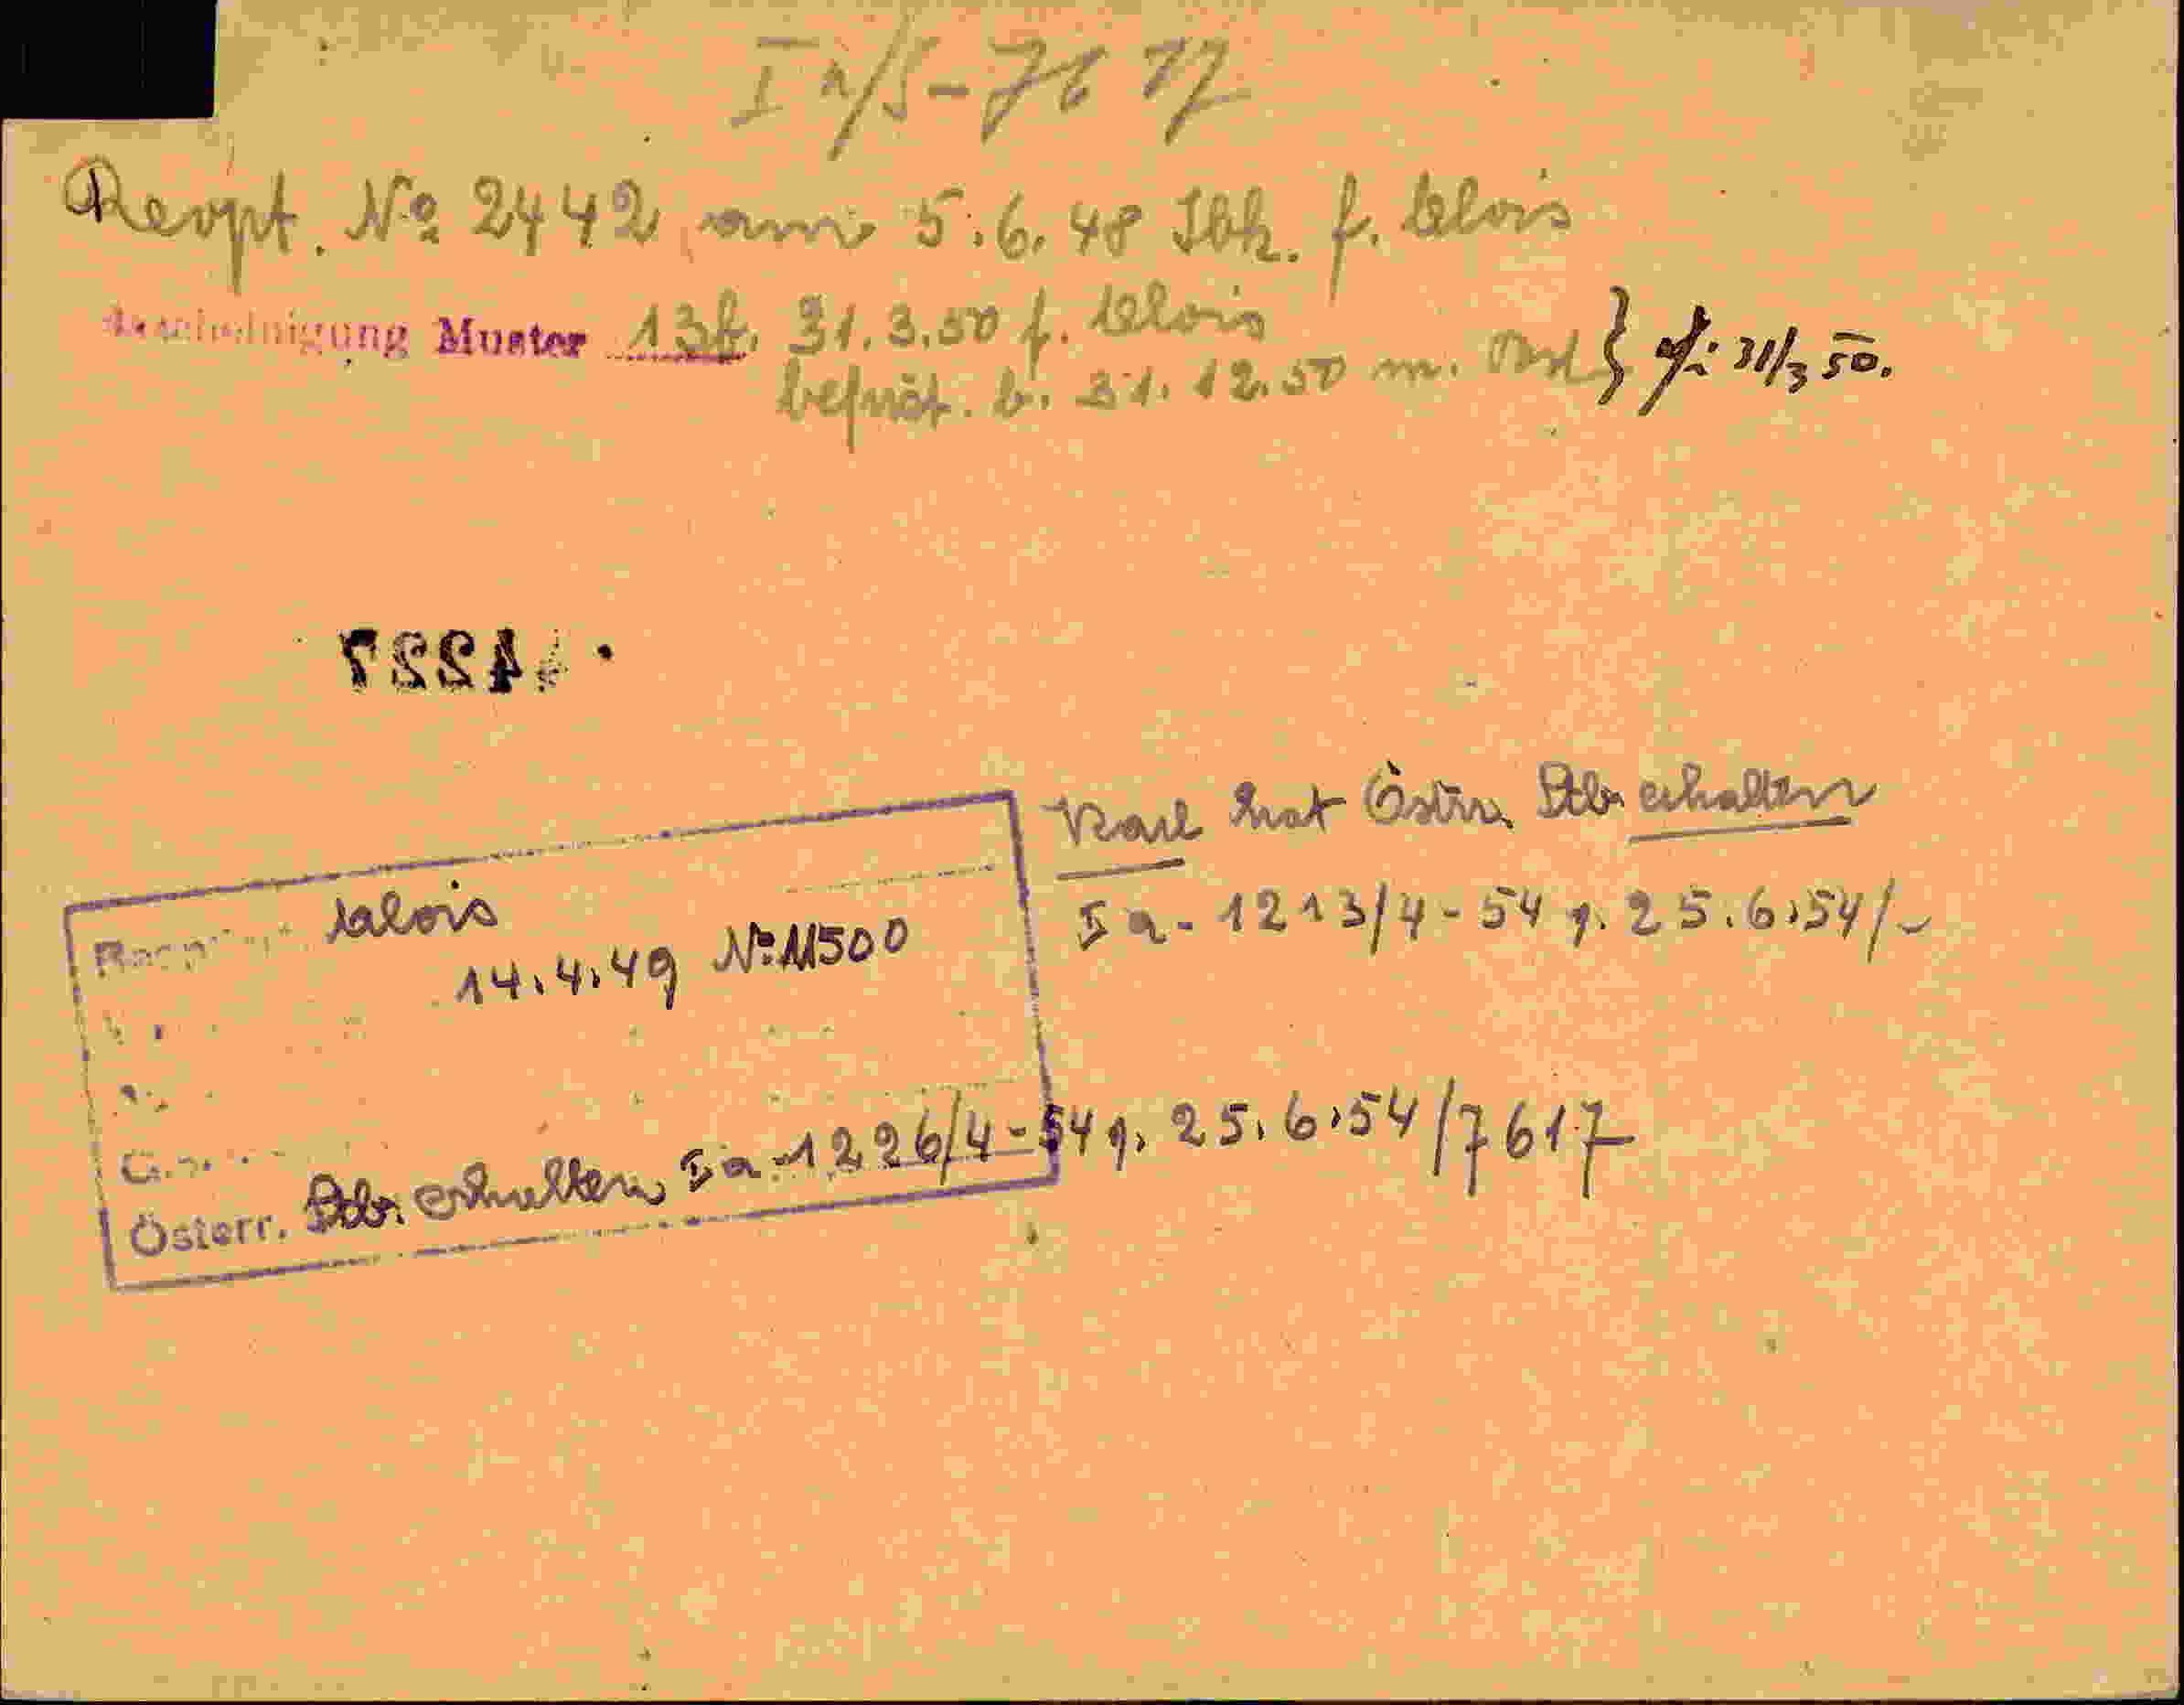 I a/5-7617
Reopt. № 2442 am 5.6.48 Ibk. f. Alois
Bescheinigung Muster 13b. 31.3.50 f. Alois
befrist. b. 31.12.50 m. } 31/3 50.
7221
Karl hat Östr. Stb. erhalten
Alois
I a - 1213/4 - 54 v. 25.6.54/-
14.4.49 №11500
Österr. Stb. erhalten I a - 1226/4 - 54 v. 25.6.54/7617